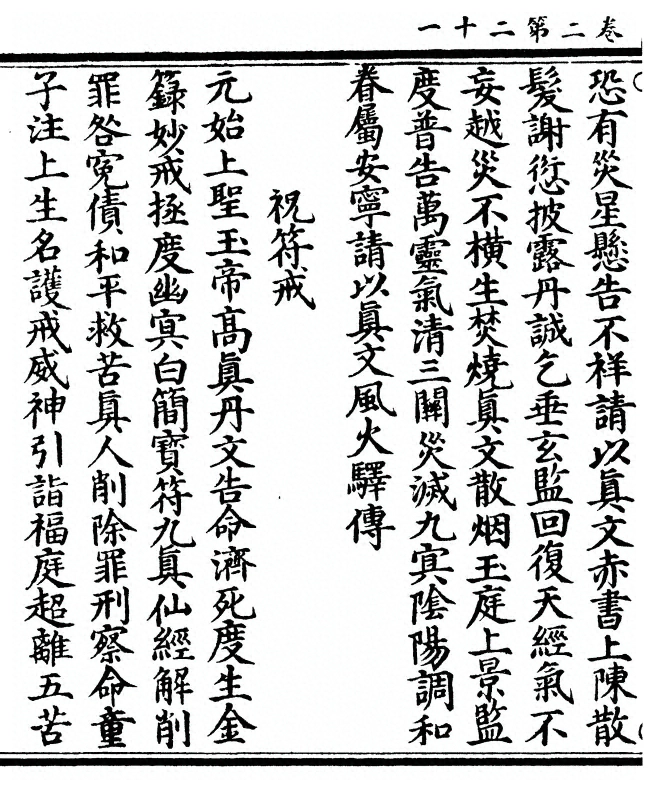 卷二第二十一
恐有災星懸告不祥請以眞文赤書上陳散
髮謝愆披露丹誠乞垂玄監回復天經氣不
妄越災不橫生焚燒眞文散烟玉庭上景監
度普告萬靈氣清三關災滅九冥陰陽調和
眷屬安寧請以眞文風火驛傳
祝符戒
元始上聖玉帝高眞丹文告命濟死度生金
籙妙戒拯度幽冥白簡寶符九眞仙經解削
罪咎寃債和平救苦眞人削除罪刑察命童
子注上生名護戒威神引詣福庭超離五苦